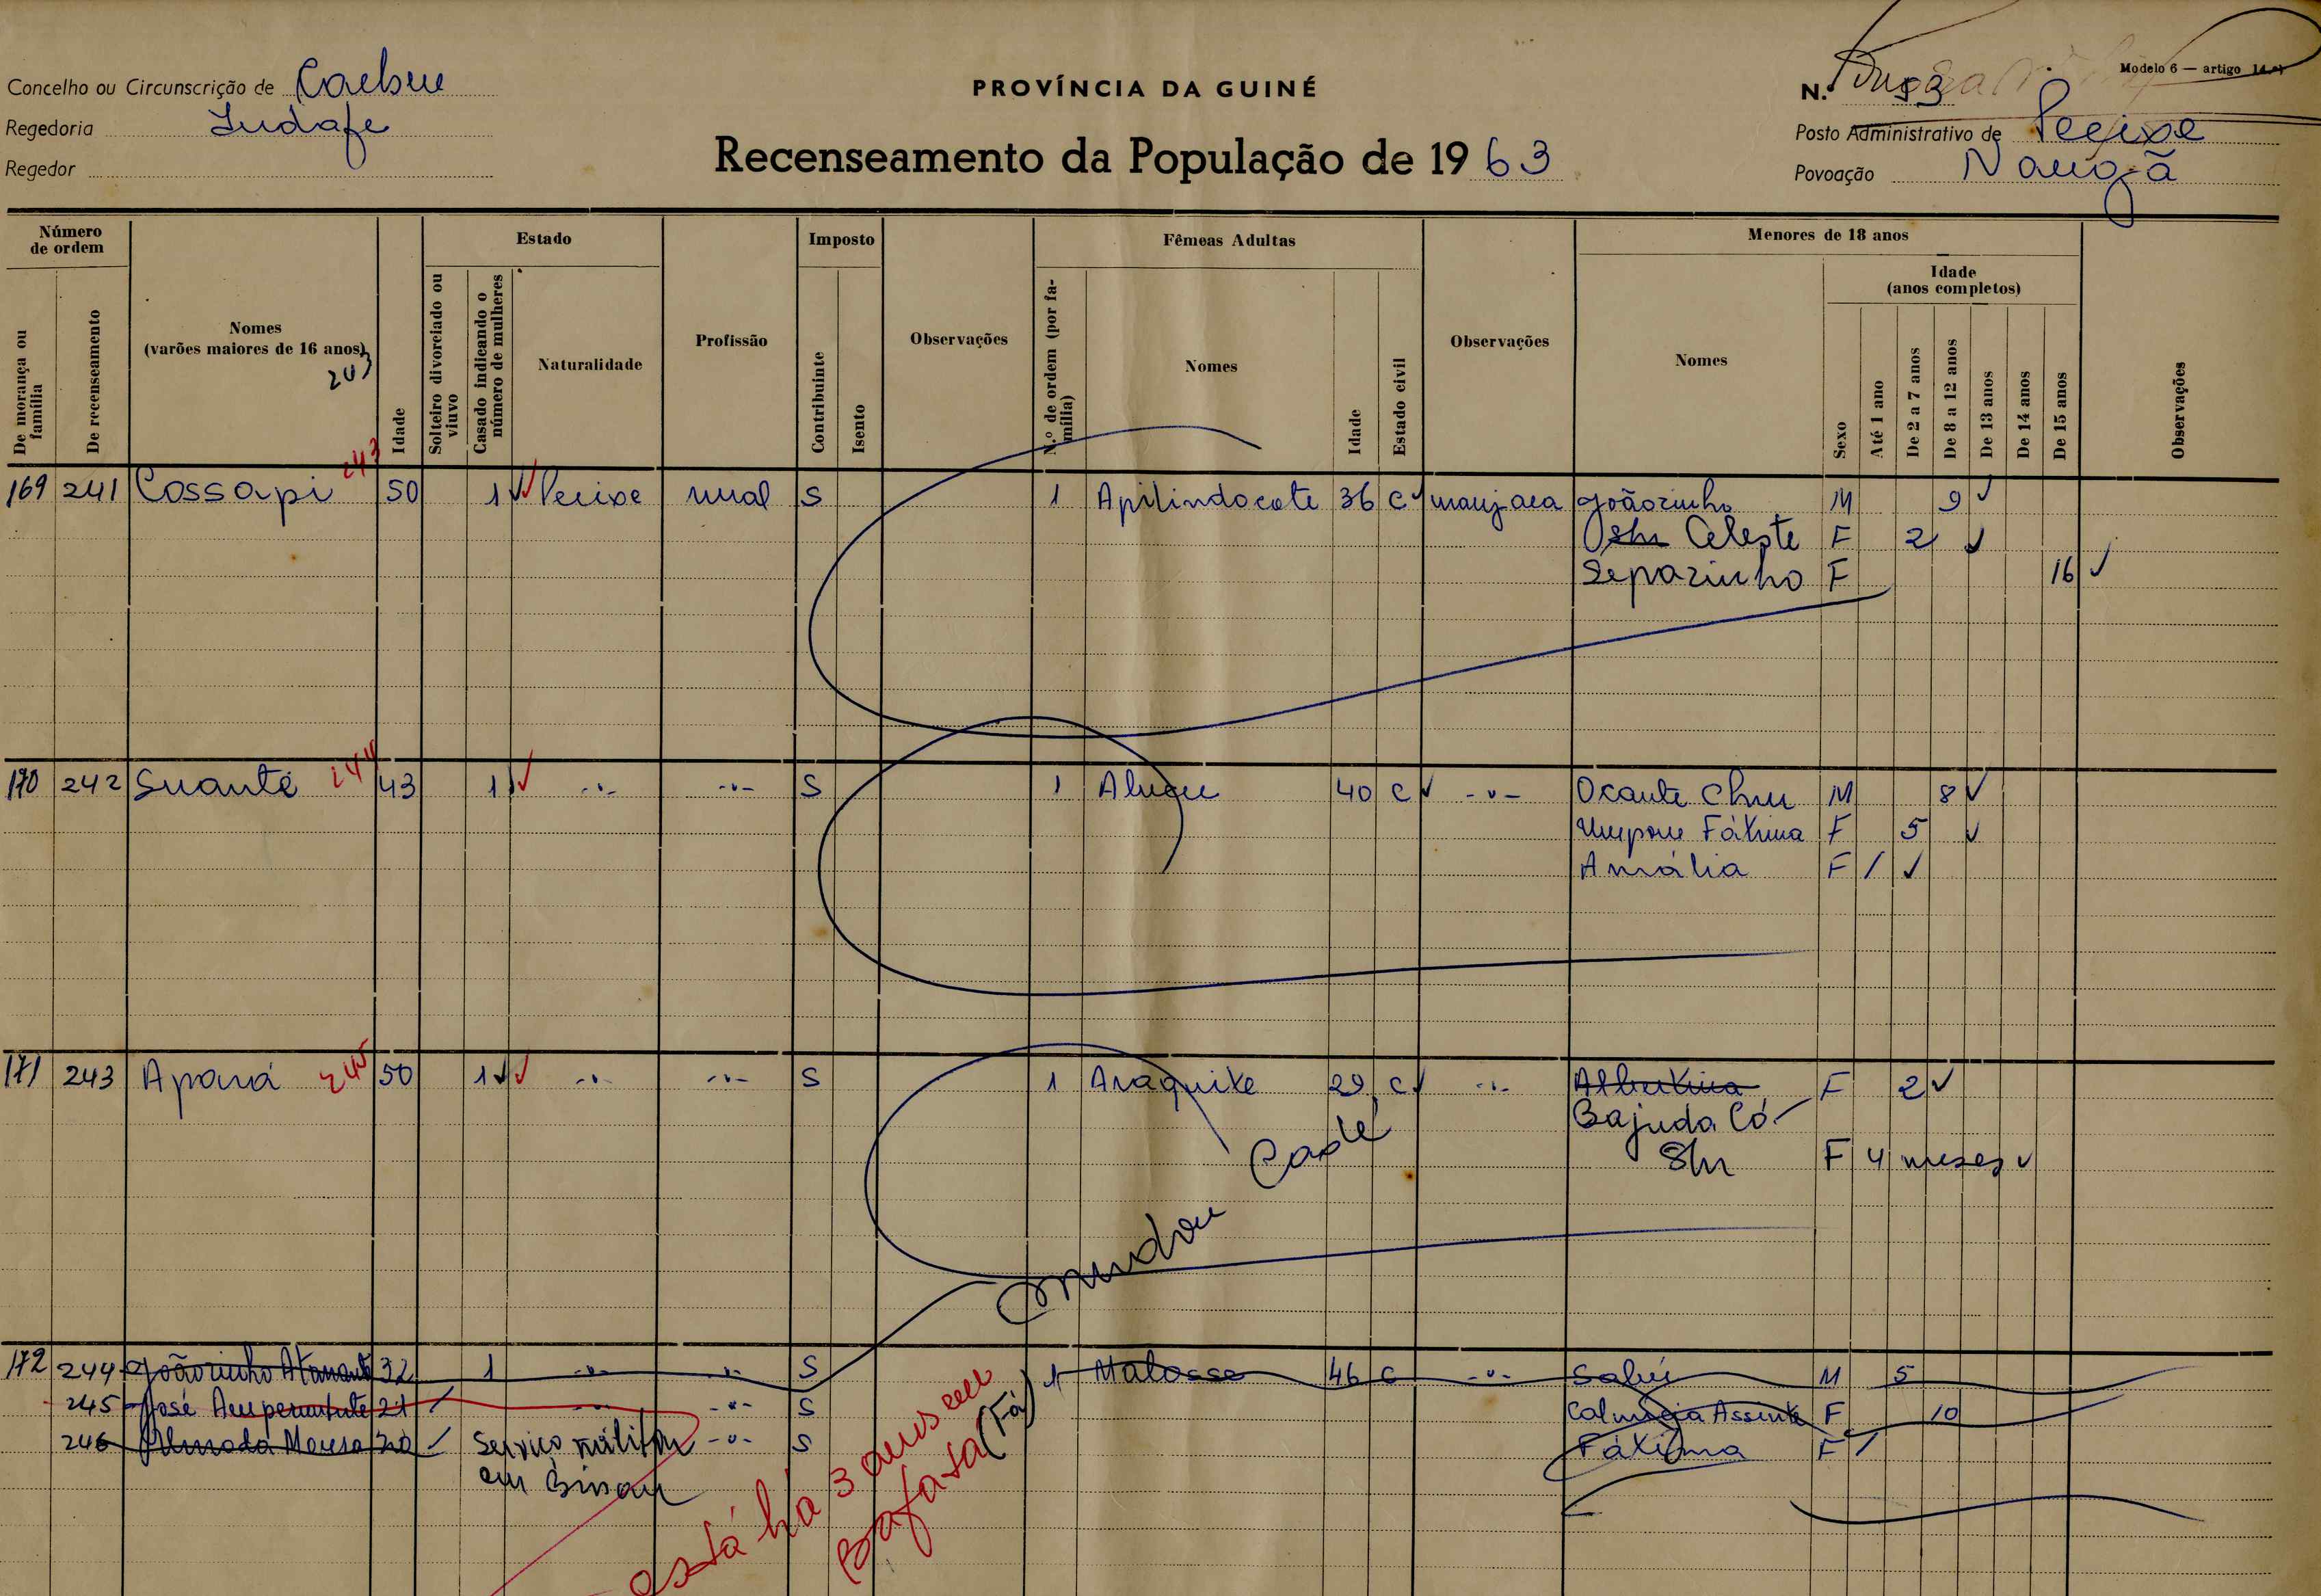 Modelo 6 — artigo 14.º)
Concelho ou Circunscrição de
PROVÍNCIA DA GUINÉ
N.º 53
Regedoria
Recenseamento da População de 1963
Posto Administrativo de Pecixe
Regedor
Povoação Nangã
Número de ordem
Estado
Imposto
Fêmeas Adultas
Menores de 18 anos
Idade (anos completos)
De morança ou família
De recenseamento
Nomes (varões maiores de 16 anos)
243
Idade
Solteiro divorciado ou viuvo
Casado indicando o número de mulheres
Naturalidade
Profissão
Contribuinte
Isento
Observações
N.º de ordem (por família)
Nomes
Idade
Estado civil
Observações
Nomes
Sexo
Até 1 ano
De 2 a 7 anos
De 8 a 12 anos
De 13 anos
De 14 anos
De 15 anos
Observações
169 241 Cossapi 243 50 1 Pecixe rural S 1 Apilindocote 36 C manjaca Joãozinho M 9
Celeste F 2
Separinho F 16
170 242 Suante 244 43 1 -"- -"- S 1 40 C -"- Ocante M 8
Fátima F 5
Amália F /
171 243 Apaná 245 50 1 -"- -"- S 1 Araquite 29 C -"- Albertina F 2
Bajuda Có
F 4 meses
mudou Casle
172 244 Joãozinho 32 1 -"- -"- S 1 Malosse 46 C -"- M 5
245 José 21 -"- -"- S F 10
246 20 Serviço militar -"- S Fátima F /
em Bissau
está há 3 anos em
Bafata (Fá)